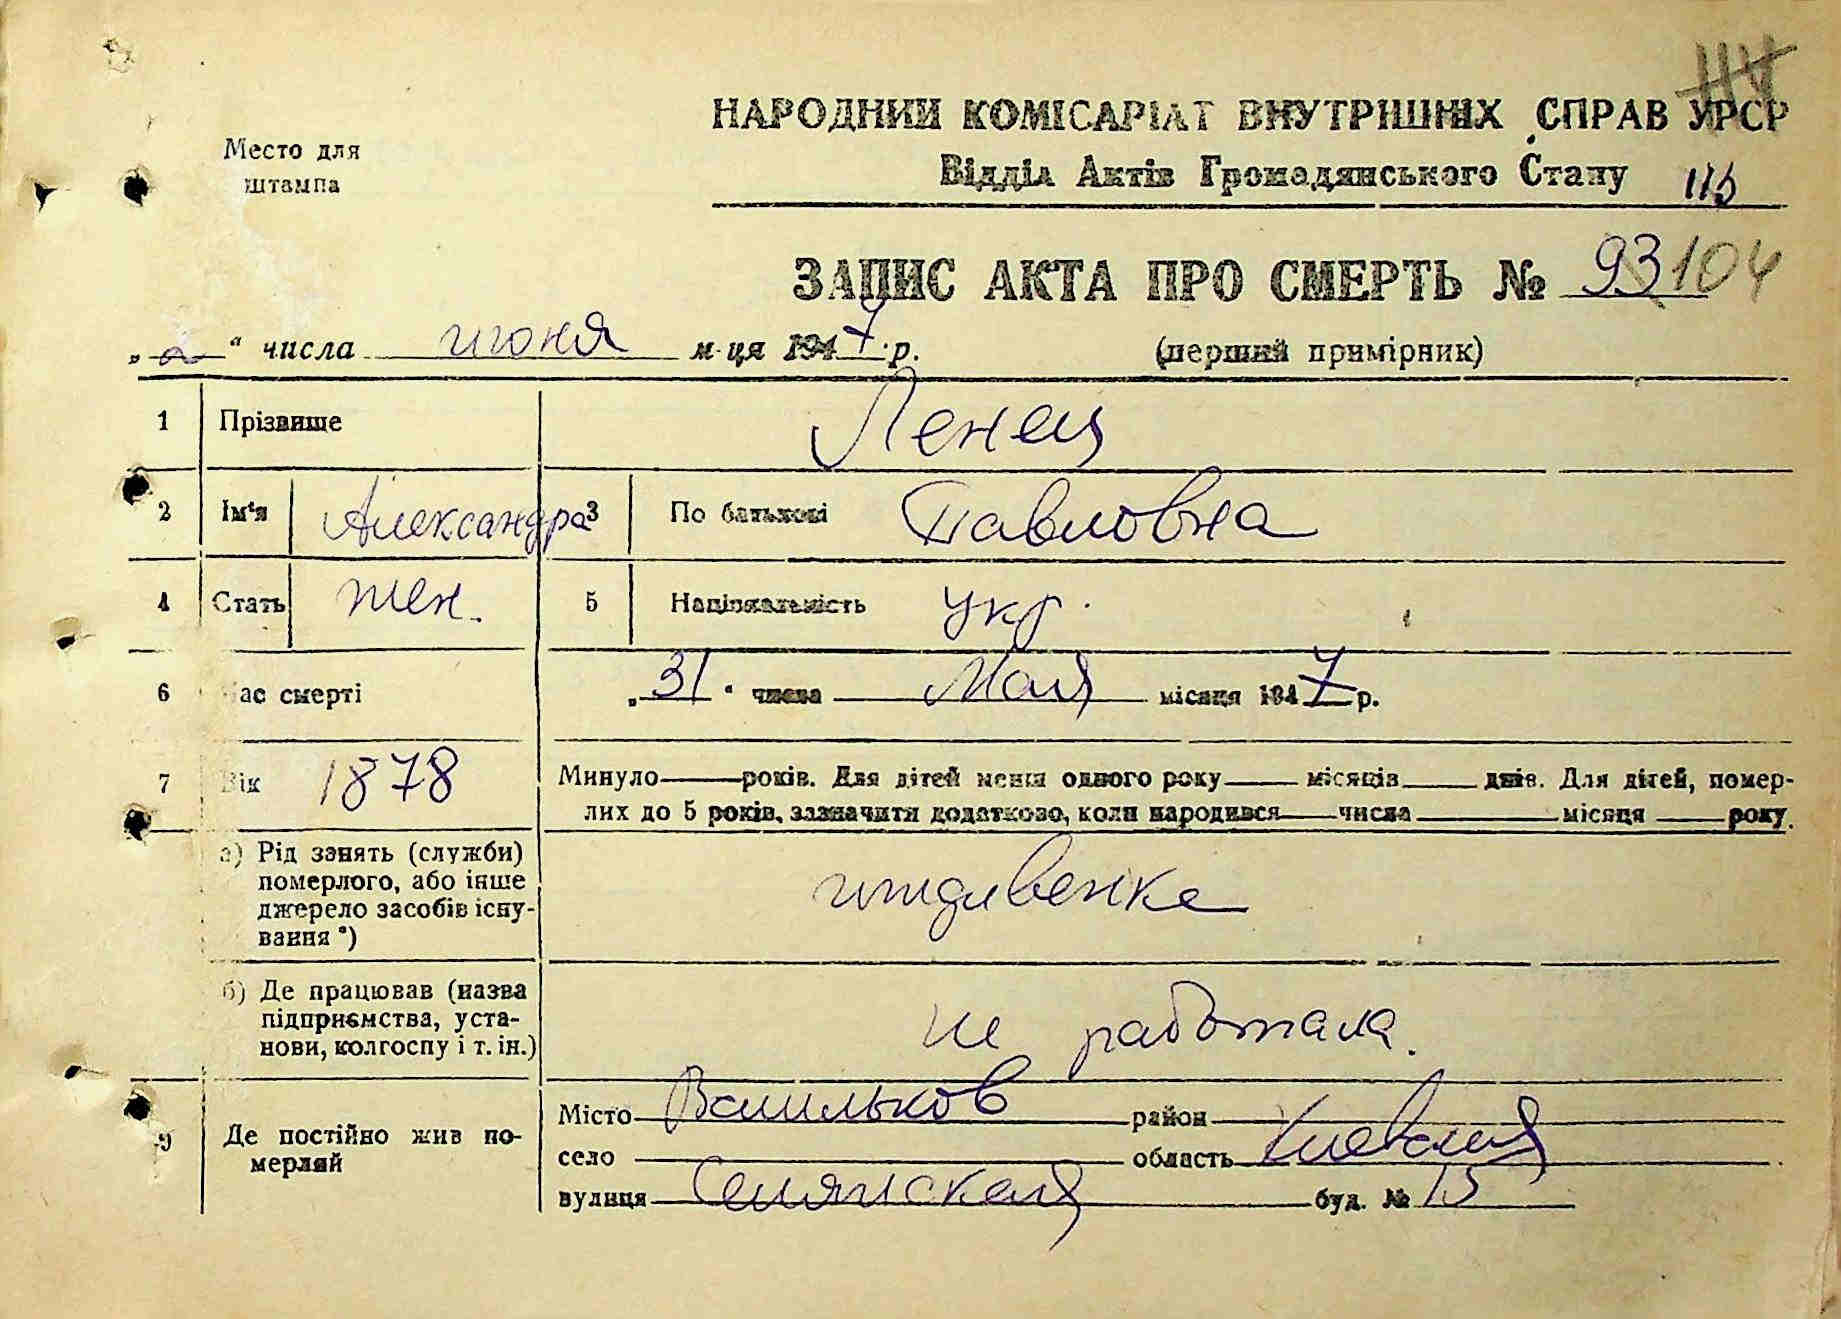 НАРОДНИЙ КОМІСАРІАТ ВНУТРІШНІХ СПРАВ УРСР
Место для
штампа
Відділ Актів Громадянського Стану 115
ЗАПИС АКТА ПРО СМЕРТЬ № 93 104
„2“ числа июня м-ця 1947 р. (перший примірник)
1 Прізвище Ленец
2 Ім'я Александра 3 По батькові Павловна
4 Стать жен. 5 Національність укр.
6 Час смерті „31“ числа Мая місяця 1947 р.
7 Вік 1878 Минуло років. Для дітей менш одного року місяців днів. Для дітей, помер-
лих до 5 років, зазначити додатково, коли народився числа місяця року.
а) Рід занять (служби)
померлого, або інше
джерело засобів існу-
вання *)
иждивенка
б) Де працював (назва
підприємства, уста-
нови, колгоспу і т. ін.)
не работала.
9 Де постійно жив по-
мерлий
Місто Васильков район
село область Киевская
вулиця буд. № 15